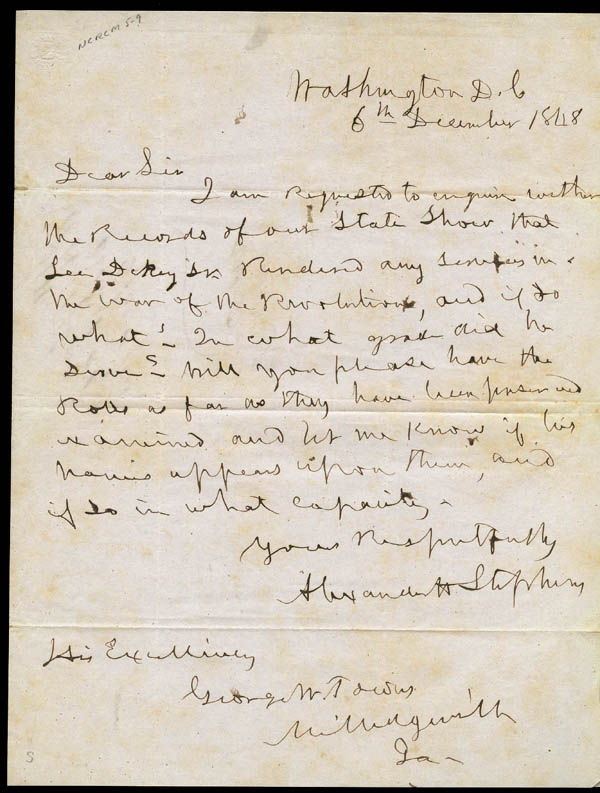 NCRCM 5-9
Washington D. C
6th December 1848
Dear Sir
I am requested to enquire wether
the Records of our State Show that
Rendered any services in
the war of the Revolution, and if so
what? In what grade did he
Serve? Will you please have the
Rolls as far as they have been preserved
examined and let me know if his
name appears upon them, and
if so in what capacity.
Yours Respectfully
Alexander H Stephens
His Excellency
George W. Towns
Milledgeville
Ga-